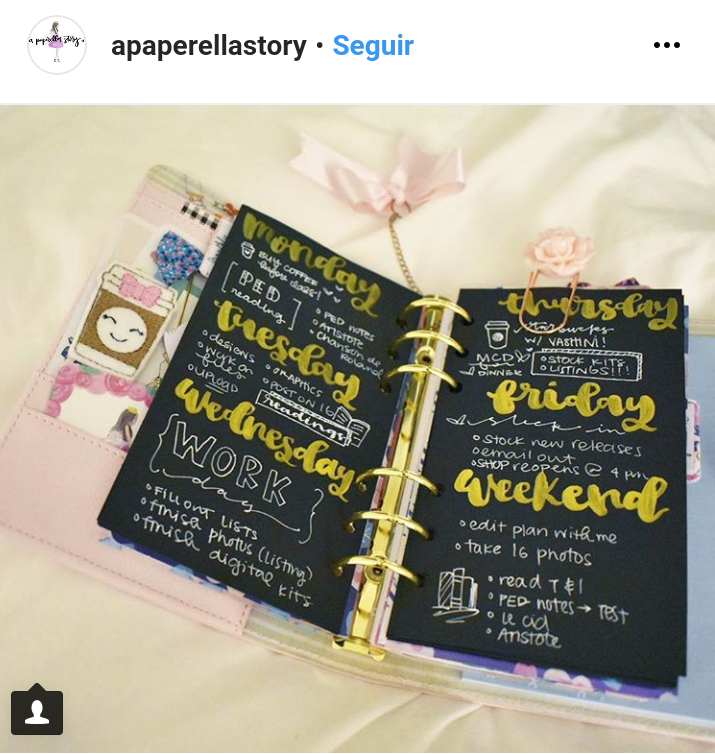 a paperella story.
apaperellastory • Seguir
monday
BUY COFFEE
before class!
PED
reading
• PED notes
• ARISTOTE
• Chanson de
Roland
tuesday
• designs
• WORK on
files
• UPLOAD
• GRAPHICS
• POST ON IG
readings
Wednesday
WORK
day
• FILL OUT LISTS
• finish photos (listing)
• finish digital
kits
thursday
Starbucks
W/ VASHTINI!
MCD
DINNER
• STOCK KITS
• LISTINGS!!!
friday
sleep in
• stock new releases
• email out
• SHOP reopens @ 4 pm
Weekend
• edit plan with me
• take 16 photos
• read T & I
• PED notes → TEST
• Le cid
• Aristote